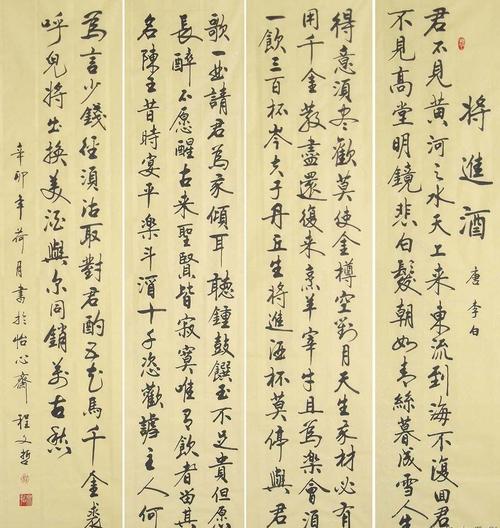 將進酒
唐 李白
君不見黃河之水天上来東流到海不復回君
不見高堂明鏡悲白髮朝如青絲暮成雪人生
得意須盡歡莫使金樽空對月天生我材必有
用千金散盡還復来烹羊宰牛且為樂會須
一飲三百杯岑夫子丹丘生將進酒杯莫停與君
歌一曲請君為我傾耳聽鍾鼓饌玉不足貴但愿
長醉不愿醒古来聖賢皆寂寞唯有飲者留其
名陳王昔時宴平樂斗酒十千恣歡謔主人何
為言少錢徑須沽取對君酌五花馬千金裘
呼兒將出換美酒與尔同銷萬古愁
辛卯年荷月書於怡心齋程文哲